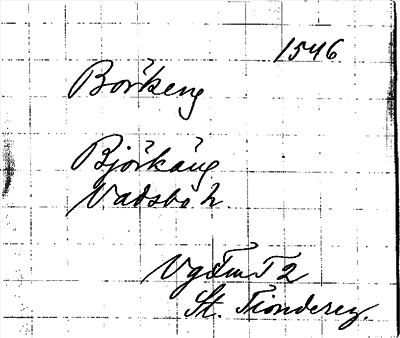 1546
Börkeng
Björkäng
Vadsbo h.
Vg Tm T 2
St. Tiondereg.